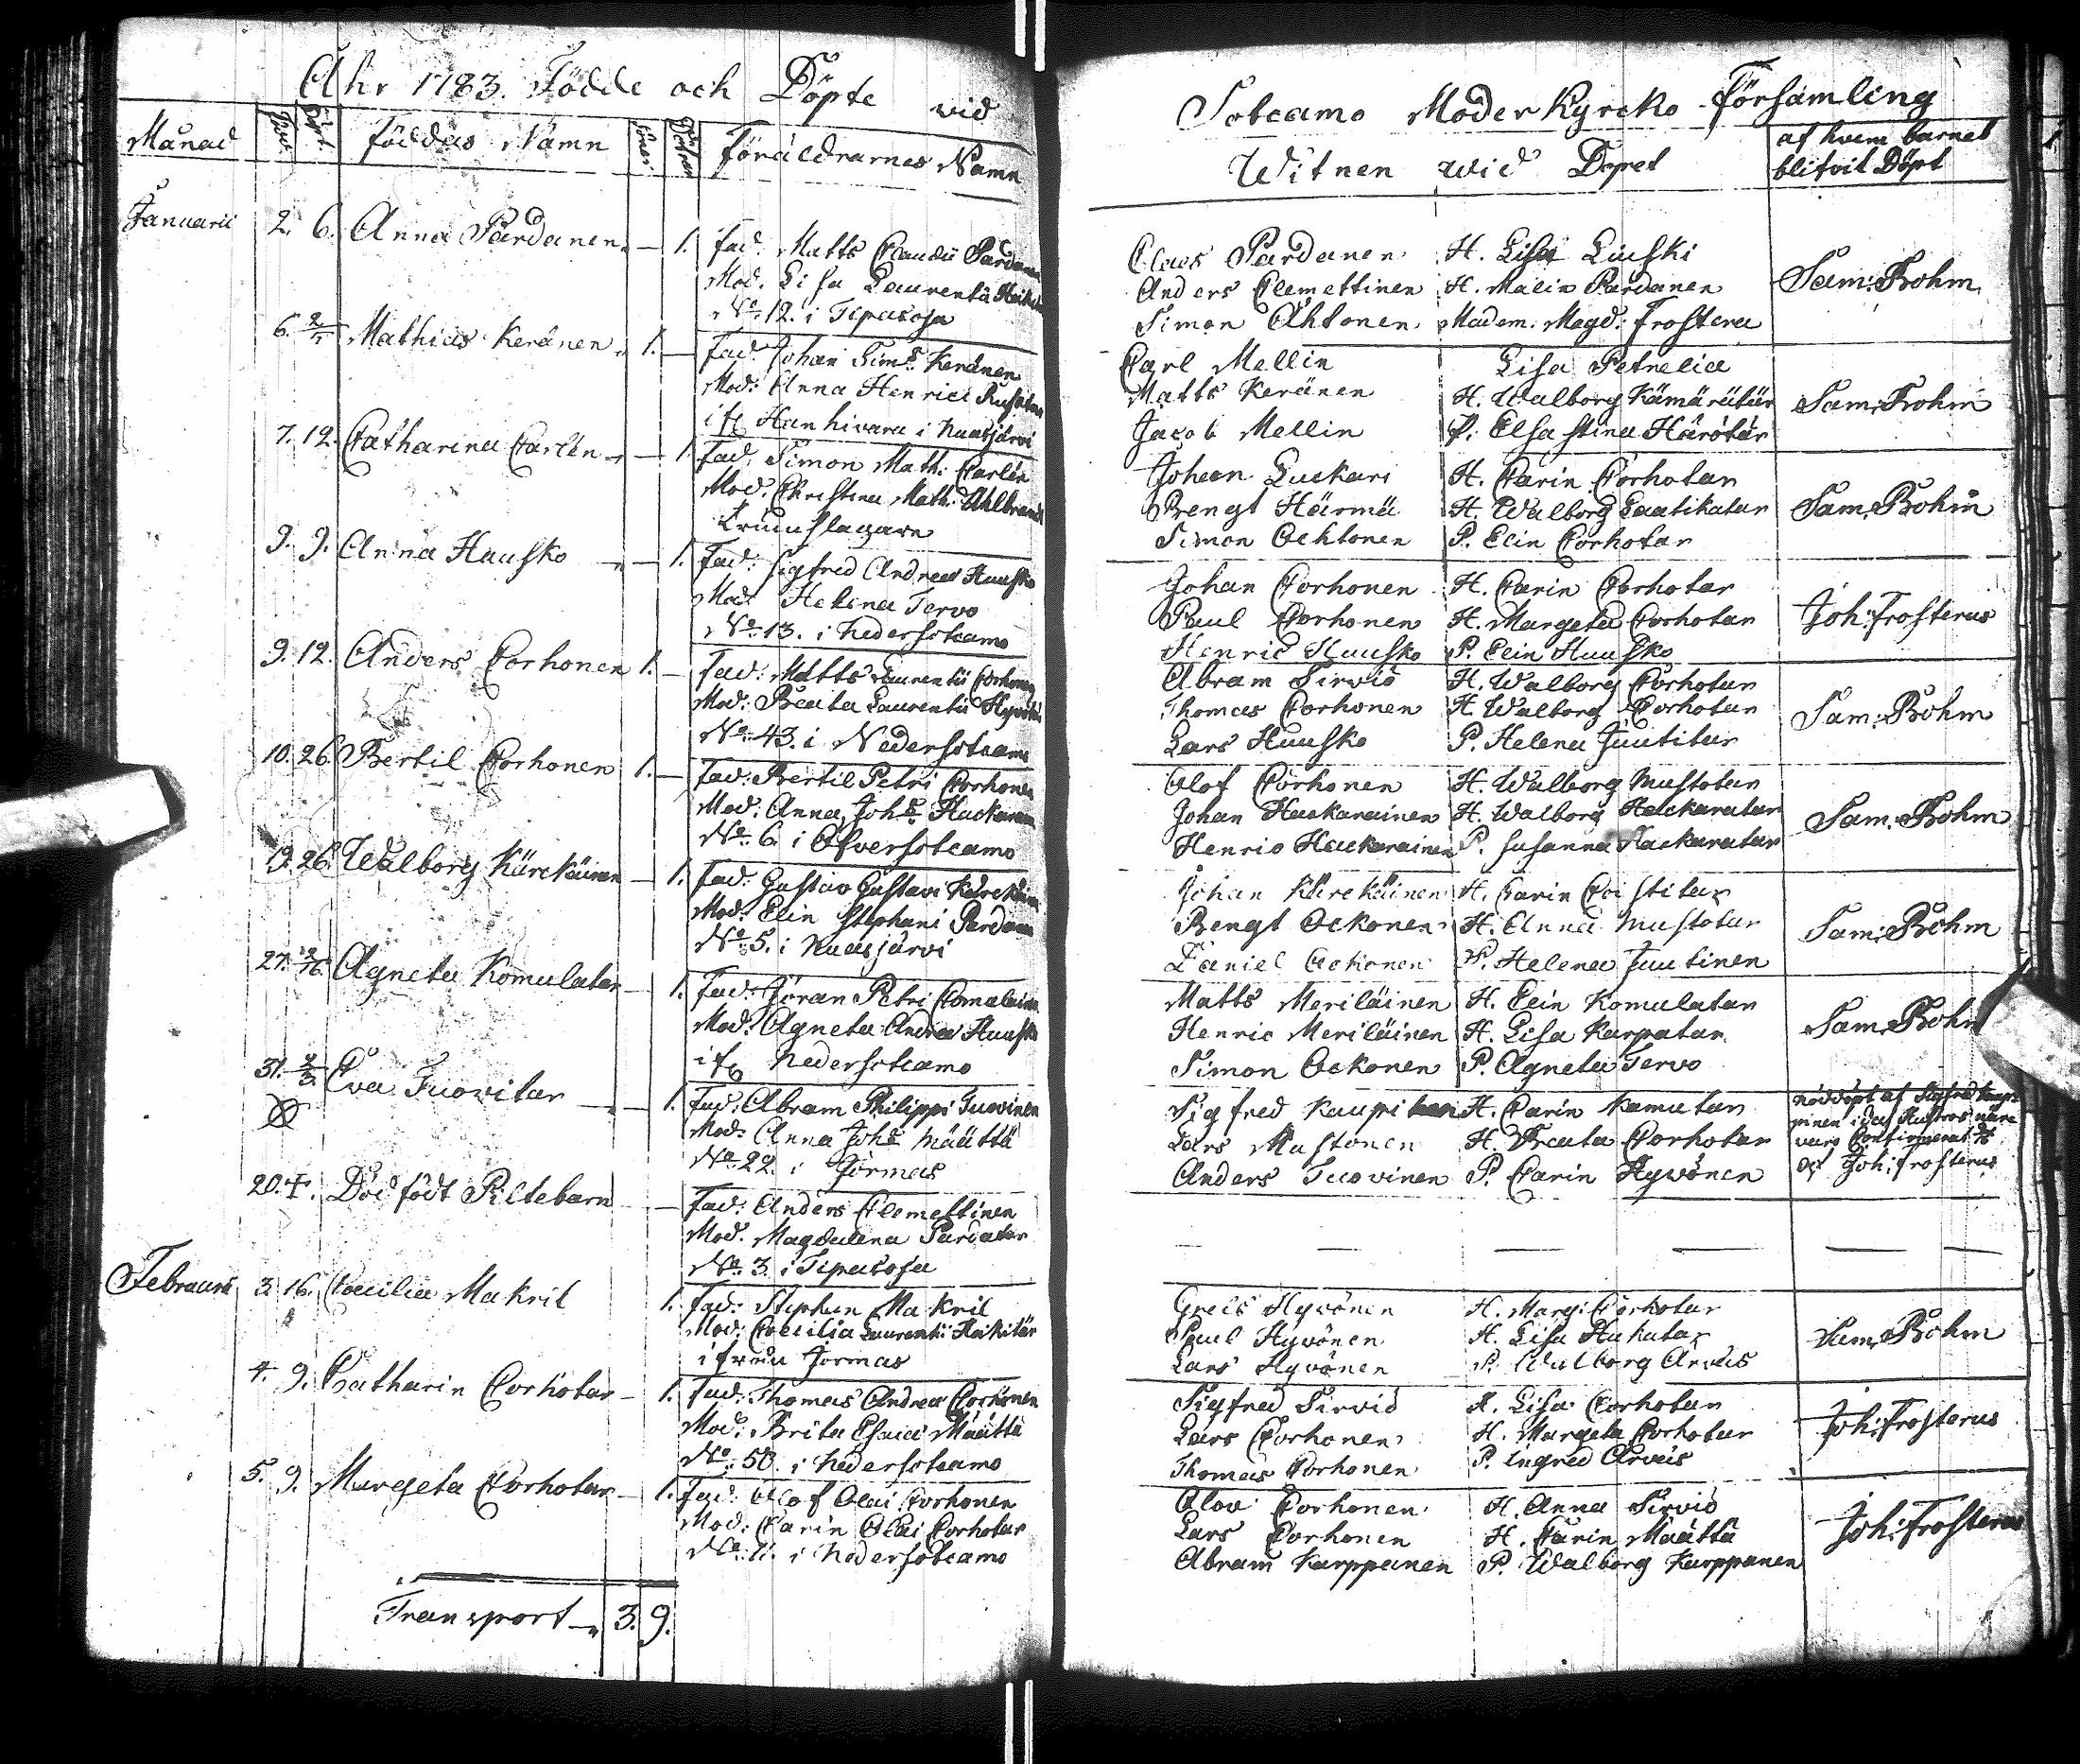 Ahr 1783. Födde och Döpte vid
Månad Född Döpt föddas Namn Söner Döttrar Föräldrarnes Namn
Januarii 2. 6. Anna Pardanen „ — 1. Fad. Matts Claudii Pardanen
Mod. Lisa Laurentii
No 12. i Tipasoja
6. 2/2 Mathias Keränen „ 1. — Fad: Johan Sims. Keränen
Mod: Anna Henrici
i fr Hanhivara i Nuasjärvi
7. 12. Catharina Carlén „ — 1. Fad. Simon Math: Carlén
Mod. Christina Math. Ahlbrandt
Trumslagare
9. 9. Anna Hausko „ — 1. Fad: Sigfred Andreæ Hausko
Mod. Helena Tervo
No 13. i Nedersotcamo
9. 12. Anders Corhonen 1. — Fad: Matts Laurentii Corhonen
Mod: Beata Laurentii
No 43. i Nedersotcamo
10. 26. Bertil Corhonen 1. — Fad: Bertil Petri Corhonen
Mod: Anna Johs
No 6 i Öfversotcamo
19. 26. Walborg Kärckäinen — 1. Fad: Gustav Gustavi Kärckäinen
Mod: Elin Stephani Pardanen
No 5. i Nuasjärvi
27. 2/16 Agneta Komulatar — 1. Fad: Jöran Petri Comulainen
Mod: Agneta Andreæ Hausko
i fr Nedersotcamo
31. 2/3 Eva Tuovitar — 1. Fad: Abram Philippi Tuovinen
Mod: Anna Johs Määttä
No 22. i Jormas
20. †. Död födt Piltebarn — Fad: Anders Clemettinen
Mod. Magdalena Pardatar
No 3. i Tipasoja
Februarii 3. 16. Cæcilia Makril 1. Fad: Stephan Makril
Mod: Cæcilia Laurentii Heikitär
Jormas
4. 9. Catharin Corhotar — 1. Fad: Thomas Andreæ Corhonen
Mod: Brita Esaiæ Määttä
No 50. i Nedersotcamo
5. 9. Margeta Corhotar — 1. Fad: Olof Olai Corhonen
Mod: Carin Olai Corhotar
No 11. i Nedersotcamo
Transport „ 3. 9.
Sotcamo Moder Kyrcko Församling
Witnen wid Dopet af hvem barnet
blifvit Döpt
Claes Pardanen H. Lisa Liuski
Anders Clemettinen H. Malin Pardanen Sam: Bohm
Simon Åhtonen Madem. Magd: Frostera
Carl Mellin Lisa Petrelia
Matts Keränen H. Walborg Kämärätär Sam: Bohm
Jacob Mellin P. Elsa Stina Härötär
Johan Luckari H. Carin Corhotar
Bengt Härmä H. Walborg Laatikatar Sam: Bohm
Simon Ochtonen P. Elin Corhotar
Johan Corhonen H. Carin Corhotar
Paul Corhonen H. Margeta Corhotar Joh: Frosterus
Henric Hausko P. Elin Hausko
Abram Sirviö H. Walborg Corhotar
Thomas Corhonen H. Walborg Corhotar Sam: Bohm
Lars Hausko P. Helena Juutitar
Olof Corhonen H. Walborg Mustotar
Johan Hackarainen H. Walborg Hackaratar Sam: Bohm
Henric Hackarainen P. Susanna Hackaratar
Johan Kärckäinen H. Carin Coistitar
Bengt Ockonen H. Anna Mustotar Sam: Bohm
Daniel Ockonen P. Helena Juutinen
Matts Meriläinen H. Elin Komulatar
Henric Meriläinen H. Lisa Karpatar Sam: Bohm
Simon Ockonen P. Agneta Tervo
Sigfred Kaupinen H. Carin Kamutar nöddöpt af Sigfred Kaupinen
Lars Mustonen H. Beata Corhotar
Anders Tuovinen P. Carin Hyvönen af Joh: Frosterus
— — — — — —
Greis Hyvönen H. Marg: Corhotar
Paul Hyvönen H. Lisa Hakatar Sam: Bohm
Lars Hyvönen P. Walborg Arvas
Sigfred Sirviö H. Lisa Corhotar
Lars Corhonen H. Margeta Corhotar Joh: Frosterus
Thomas Corhonen P. Ingred Arvas
Olov Corhonen H. Anna Sirviö
Lars Corhonen H. Carin Määttä Joh: Frosterus
Abram Karppanen P. Walborg Karppanen